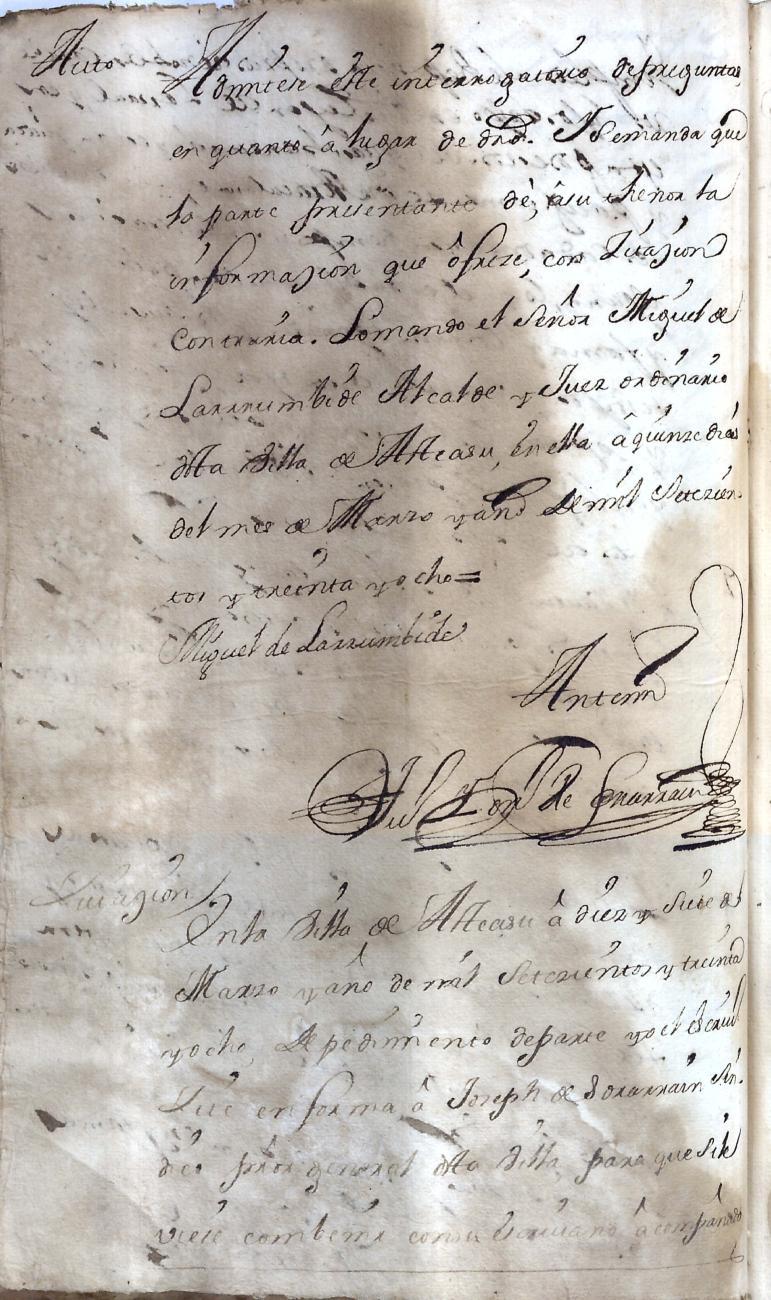 Auto Admitese este interrogatorio de preguntas
en quanto â lugar de dro. Y se manda que
la parte presentante dè, âsu thenor la
informazion que ôfreze, con Zitazion
Contraria. Lo mando el señor Miguel de
Larrumbide Alcalde y Juez ordinario
desta Villa de Asteasu, en ella â quinze dias
del mes de Marzo y año de mil Setezien-
tos y treinta y ocho =
Miguel de Larrumbide
Antemi
de Sorarrain
Zitazion En la Villa de Asteasu â diez y siete de
Marzo y año de mil Setezientos y treinta
y ocho, de pedimiento de parte yo el escriuº
Zite en forma â Joseph de Sorarrain Sin-
dico pror general desta Villa, para que si le
viese combenir con su escriuano âcompañado